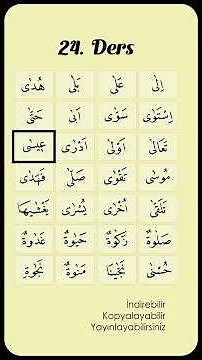 24. Ders
اِلٰى عَلٰى بَلٰى هُدٰى
اِسْتَوٰى سَوّٰى اَبٰى حَتّٰى
تَعَالٰى اَوْلٰى اَدْرٰى عِيسٰى
مُوسٰى تَقْوٰى صَلّٰى فَهَدٰى
تَلَقّٰى اُخْرٰى يُسْرٰى يَغْشٰيهَا
صَلٰوةٌ زَكٰوةٌ حَيٰوةٌ غَدٰوةٌ
حُسْنٰى نَجّٰينَا مَنٰوةٌ نَجٰوةٌ
İndirebilir
Kopyalayabilir
Yayınlayabilirsiniz